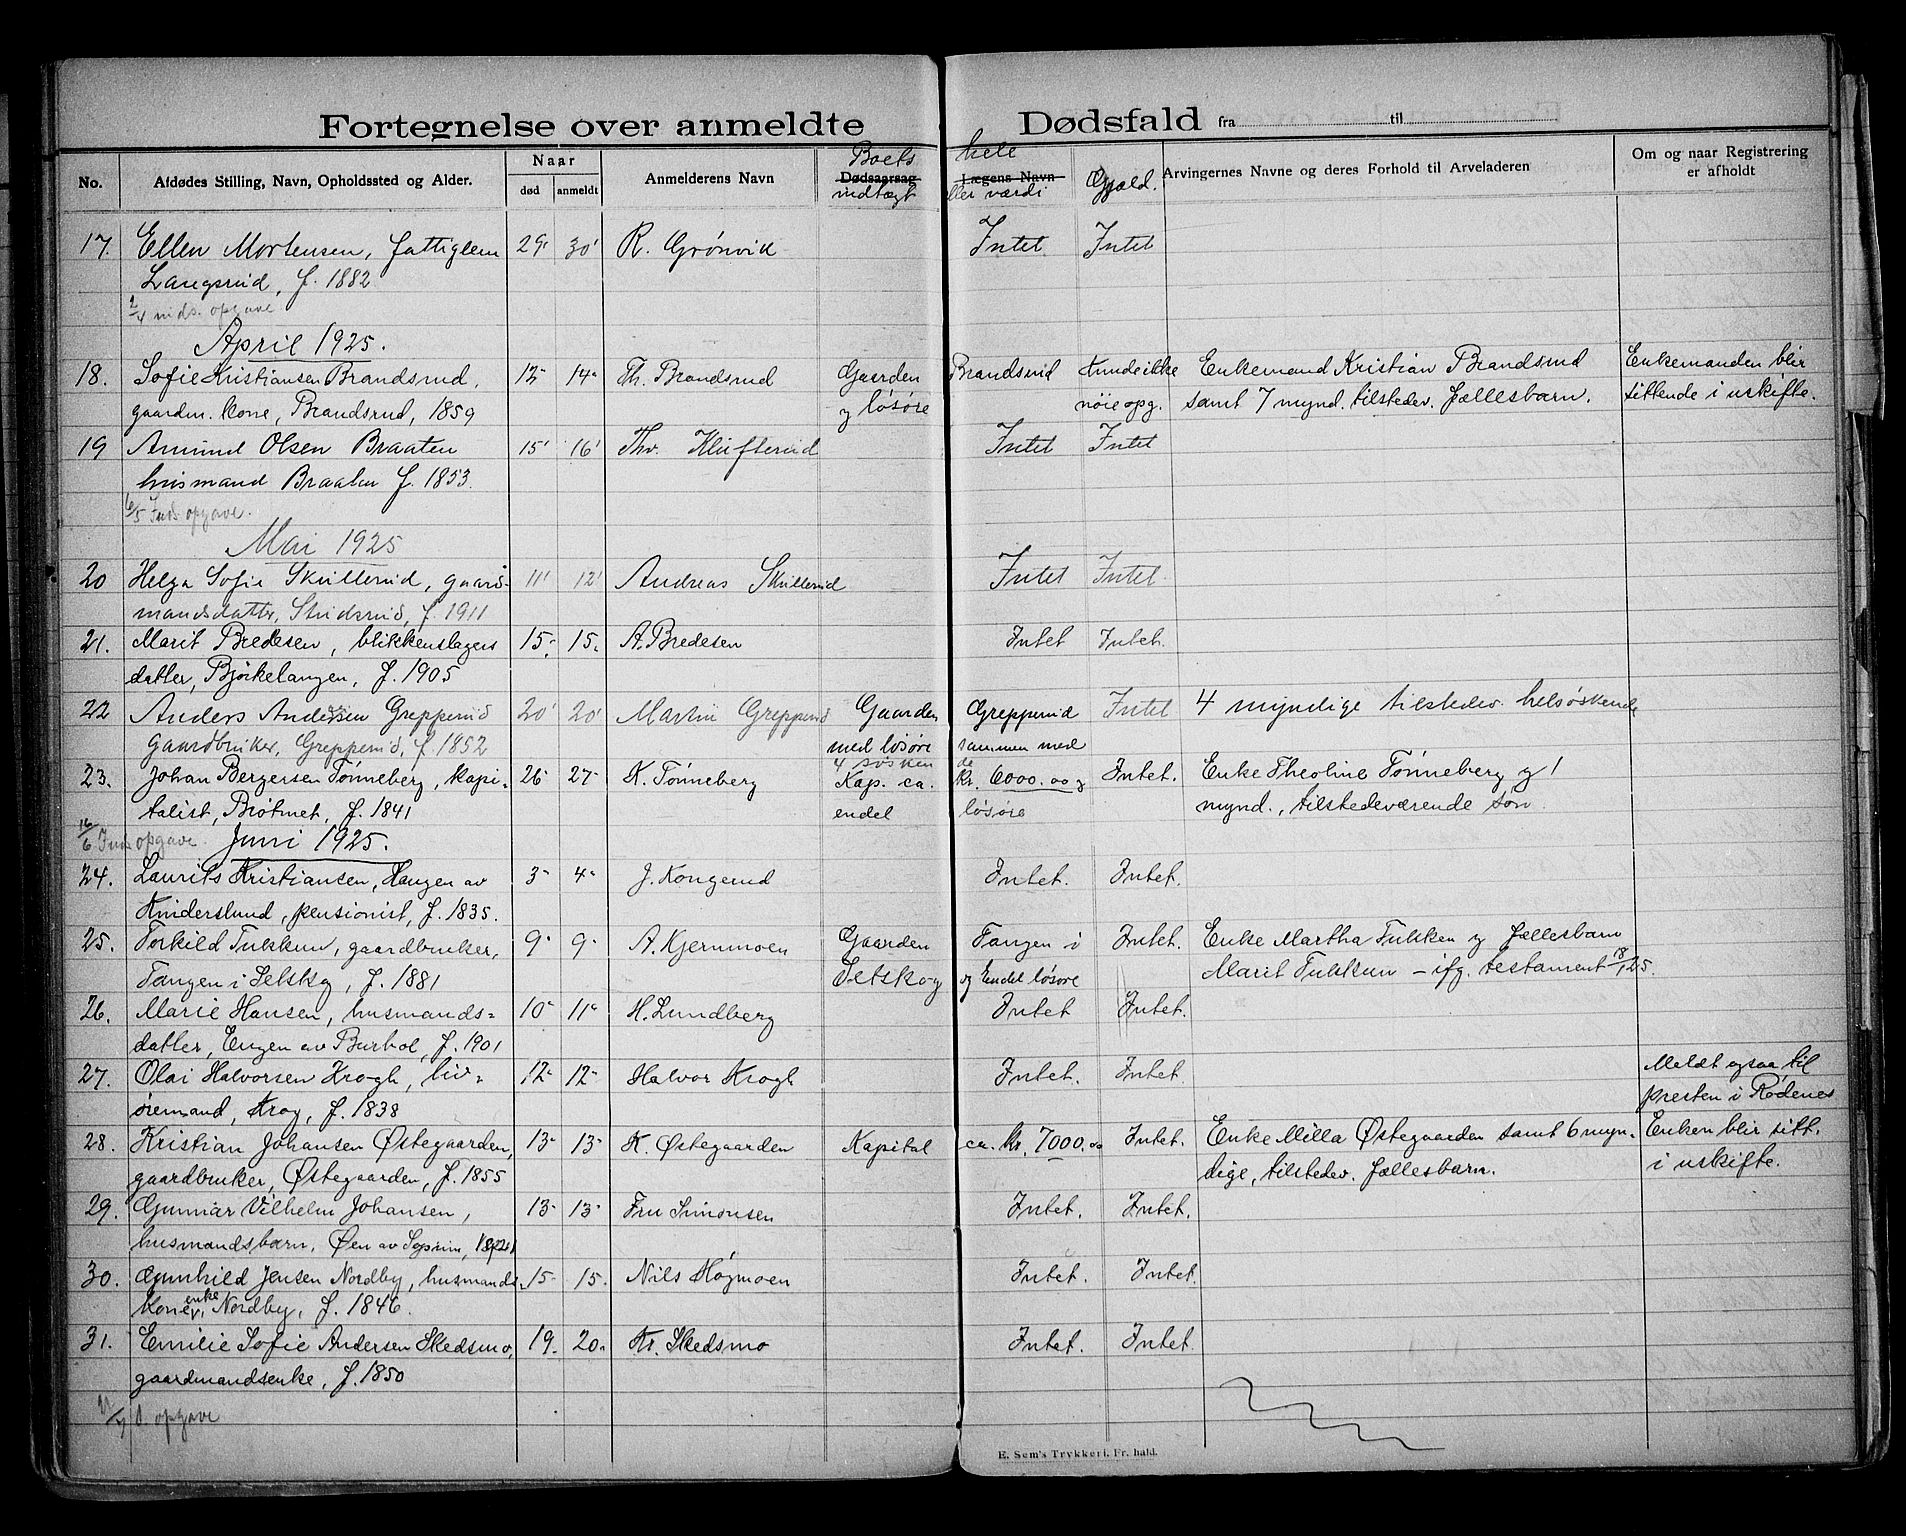 Fortegnelse over anmeldte Dødsfald fra til
No. Afdødes Stilling, Navn, Opholdssted og Alder. Naar død anmeldt Anmelderens Navn Dødsaarsag Lægens Navn Arvingernes Navne og deres Forhold til Arveladeren Om og naar Registrering er afholdt
Boets hele
indtægt eller værdi Gjæld.
17. Ellen Mortensen, fattiglem 29' 30' R. Grønvik Intet. Intet
Langsrud, f. 1882
2/4 inds. opgave
April 1925.
18. Sofie Kristiansen Brandsrud, 13- 14- Th. Brandsrud Gaarden Brandsrud Kunde ikke Enkemand Kristian Brandsrud Enkemanden blir
gaardm. kone, Brandsrud, 1859 og løsøre nöie opg. samt 7 mynd. tilstedev. fællesbarn. sittende i uskifte.
19 Amund Olsen Braaten 15' 16' Thv. Klufterud Intet Intet
husmand Braaten f. 1853.
6/5 Inds. opgave.
Mai 1925
20 Helga Sofie Skullerud, gaard- 11' 12' Andreas Skullerud Intet Intet.
mandsdatter, Stidsrud, f. 1911
21. Marit Bredesen, blikkenslagers 15- 15. A. Bredesen Intet Intet.
datter, Bjørkelangen, f. 1905
22 Anders Andersen Grepperud 20' 20' Martin Grepperud Gaarden Grepperud Intet 4 myndige tilstedev. helsøskende
gaardbruker, Grepperud, f. 1852 med løsøre sammen med
4 søsken de
23. Johan Bergersen Tønneberg, kapi- 26- 27- K. Tønneberg Kap. ca. kr. 6000.00 og Intet. Enke Theoline Tønneberg og 1
talist, Bråtnet, f. 1841 endel løsøre mynd., tilstedeværende søn.
16/6 Inds opgave. Juni 1925.
24. Laurits Kristiansen, Haugen av 3- 4- J. Kongerud Intet. Intet.
Kinderslund, pensionist, f. 1835.
25. Torkild Tukkun, gaardbruker, 9- 9- A. Kjernmoen Gaarden Tangen i Intet. Enke Martha Tukken og fællesbarn
Tangen i Setskog, f. 1881 Setskog og Endel løsøre Marit Tukkun - ifg. testament 18/1 25.
26. Marie Hansen, husmands- 10- 11- H. Lundberg Intet Intet.
datter, Engen av Burhol, f. 1901
27. Olai Halvorsen Krogh, liv- 12- 12- Halvor Krogh Intet. Intet. Meldt ogsaa til
øremand, Krog, f. 1838 presten i Rødenes
28. Kristian Johansen Østegaarden, 13- 13- K. Østegaarden Kapital ca. kr. 7000.00 Intet. Enke Milla Østegaarden samt 6 myn- Enken blir sitt.
gaardbruker, Østegaarden, f. 1855 dige, tilstedev. fællesbarn. i uskifte.
29. Gunnar Vilhelm Johansen, 13- 13- Fru Simonsen Intet. Intet.
husmandsbarn, Øen av
30. Gunhild Jensen Nordby, husmands- 15- 15. Nils Høgmoen Intet. Intet.
kone, enke, Nordby, f. 1846.
31. Emilie Sofie Andersen Skedsmo, 19. 20. Kr. Skedsmo Intet. Intet.
gaardmandsenke, f. 1850
opgave
E. Sem's Trykkeri. Fr. hald.